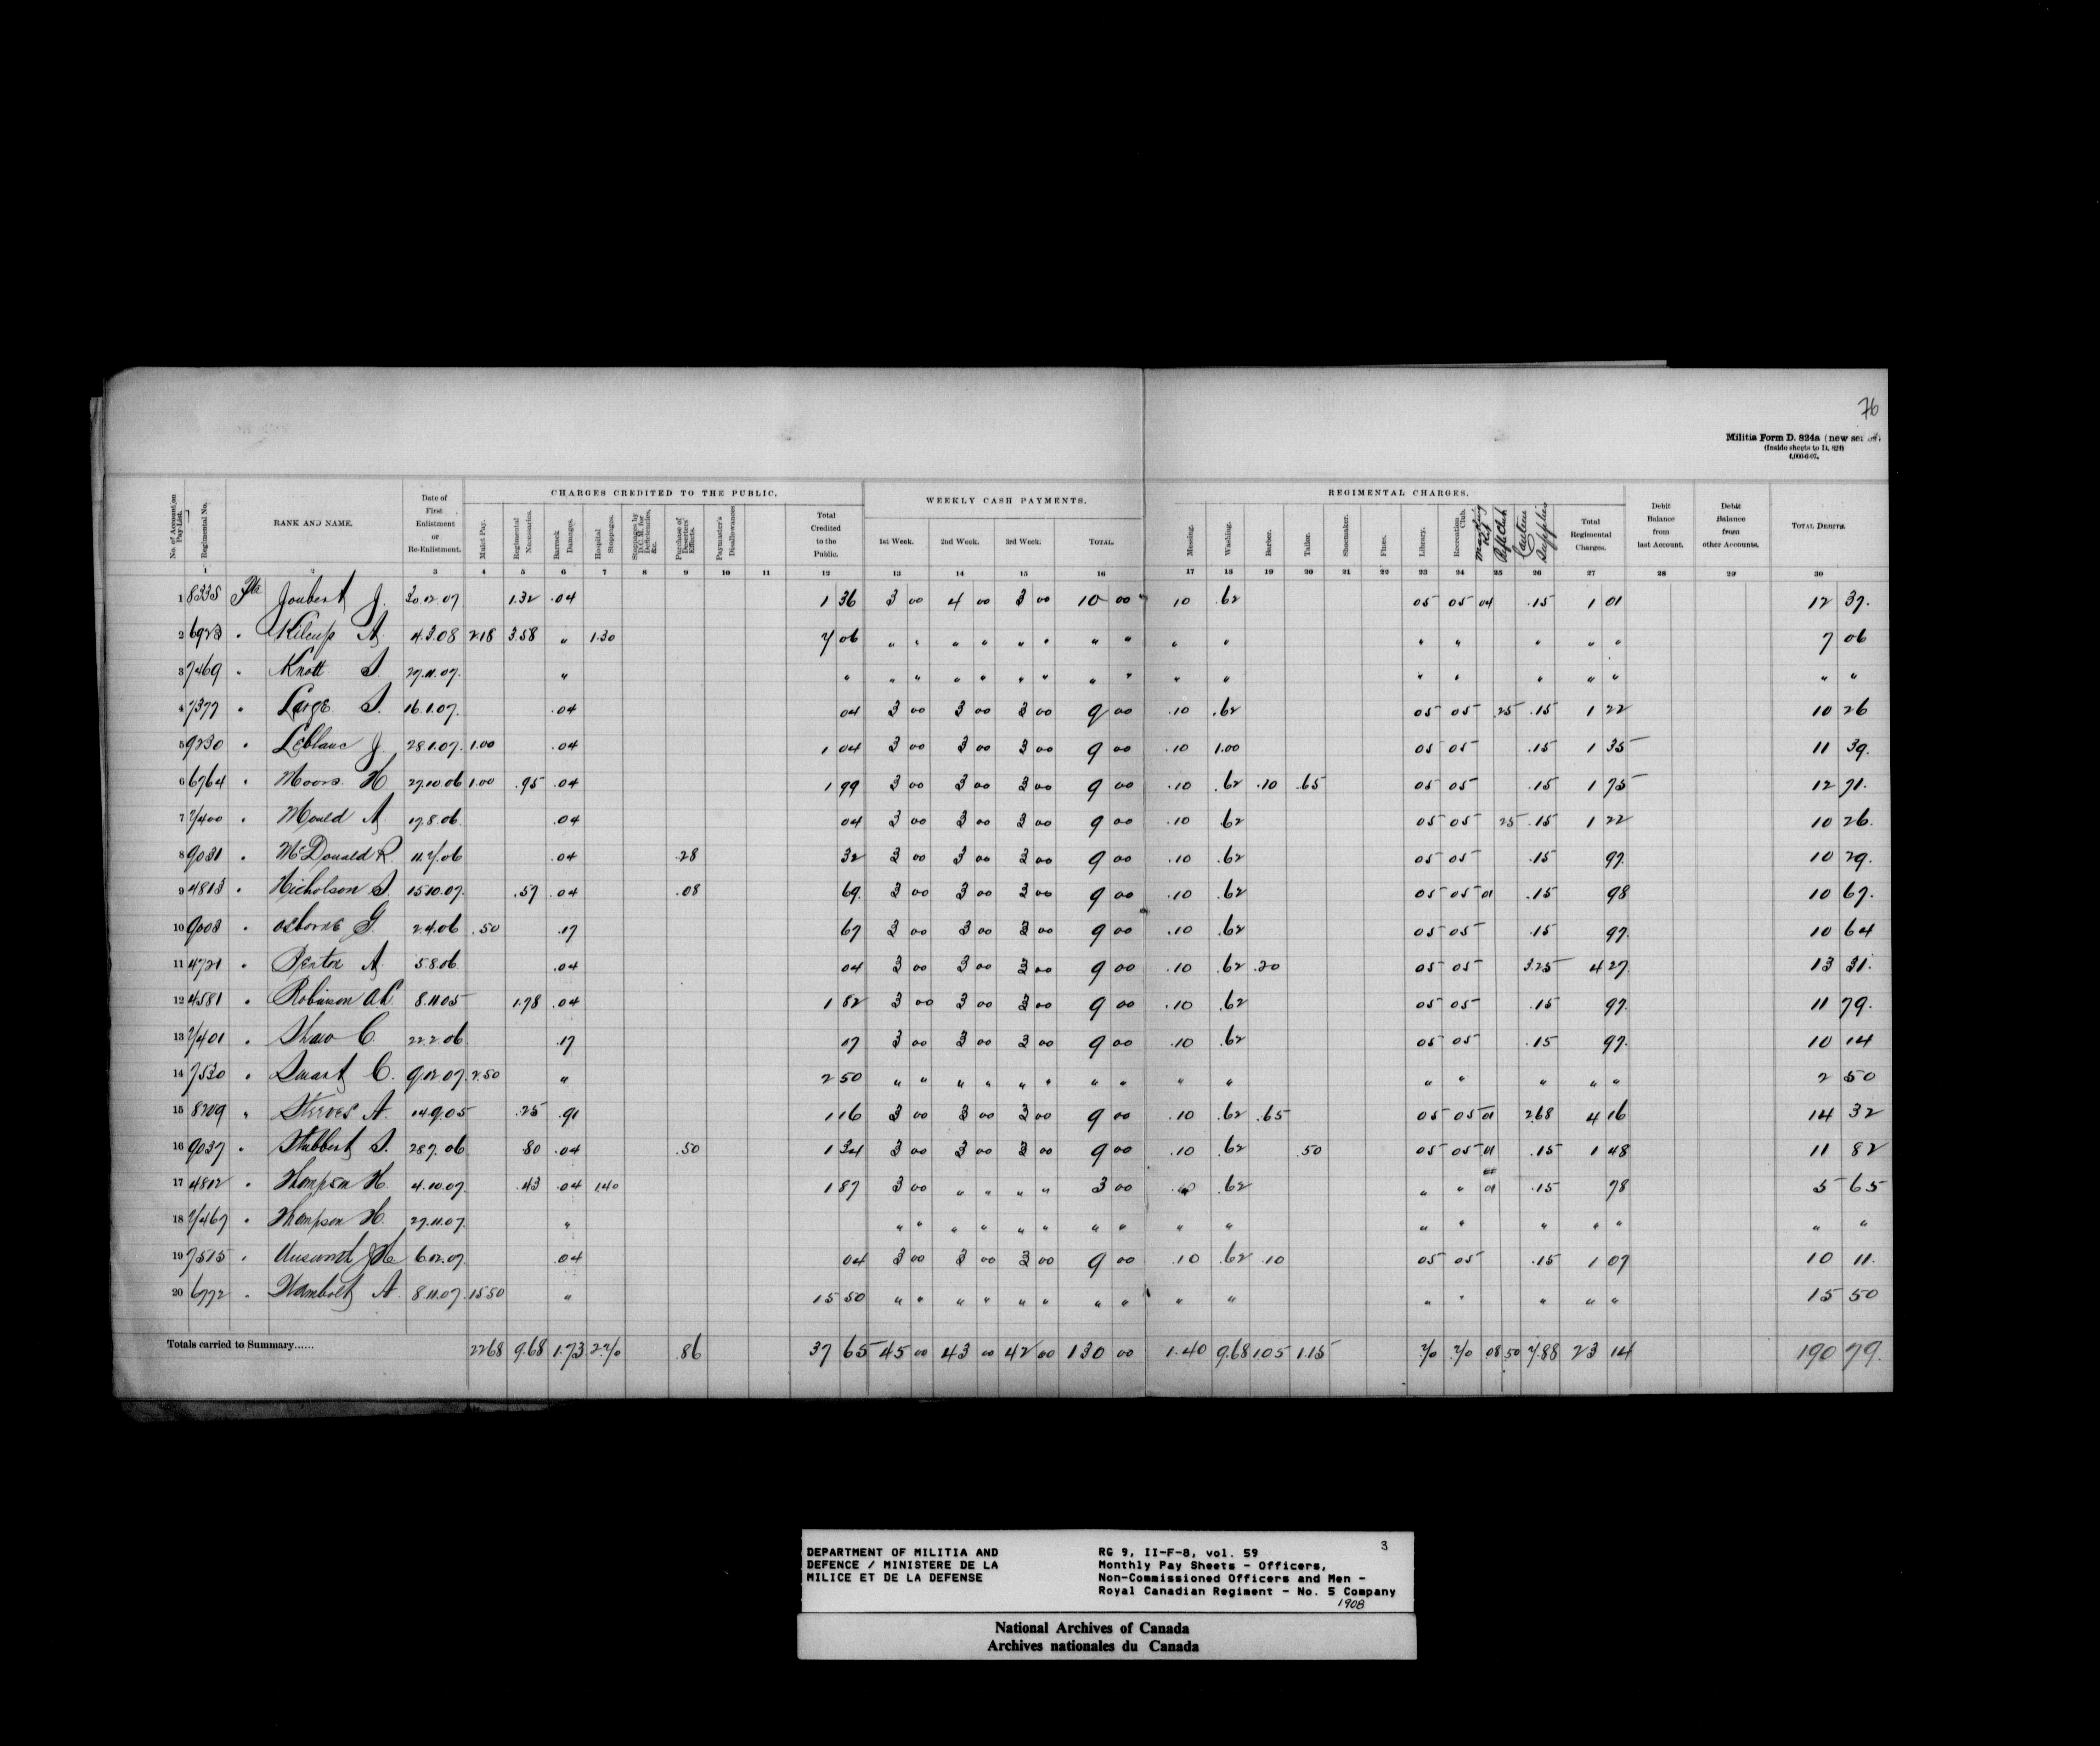 76
Militia Form D. 824a (new series)
(Inside sheets to D. 824)
4,000-6-07.
CHARGES CREDITED TO THE PUBLIC. WEEKLY CASH PAYMENTS. REGIMENTAL CHARGES.
No. of Account on Pay-List. Regimental No. RANK AND NAME. Date of First Enlistment or Re-Enlistment. Mulct Pay. Regimental Necessaries. Barrack Damages. Hospital Stoppages. Stoppages by D.C.M. for Deficiencies, &c. Purchase of Deserters' Effects. Paymaster's Disallowances Total Credited to the Public. 1st Week. 2nd Week. 3rd Week. TOTAL. Messing. Washing. Barber. Tailor. Shoemaker. Fines. Library. Recreation Club. Marking Kit Rfl Club Canteen Supplies Total Regimental Charges. Debit Balance from last Account. Debit Balance from other Accounts. TOTAL DEBITS.
1 2 3 4 5 6 7 8 9 10 11 12 13 14 15 16 17 18 19 20 21 22 23 24 25 26 27 28 29 30
1 8335 Pte Joubert J. 30.12.07 1.32 .04 1 36 3 00 4 00 3 00 10 00 10 .62 05 05 04 .15 1 01 12 37.
2 6923 " Kilcup A. 4.3.08 2.18 3.58 " 1.30 7 06 " " " " " " " " " " " " " " " 7 06
3 7469 " Knott S. 27.11.07. " " " " " " " " " " " " " " " " " " "
4 7377 " Large S. 16.1.07. .04 04 3 00 3 00 3 00 9 00 .10 .62 05 05 .25 .15 1 22 10 26
5 9230 " Leblanc J. 28.1.07. 1.00 .04 1 04 3 00 3 00 3 00 9 00 .10 1.00 05 05 .15 1 35 11 39.
6 6764 " Moors H 27.10.06 1.00 .95 .04 1 99 3 00 3 00 3 00 9 00 .10 .62 .10 .65 05 05 .15 1 75 12 71.
7 7400 " Mould A. 17.8.06. .04 04 3 00 3 00 3 00 9 00 .10 .62 05 05 25 .15 1 22 10 26.
8 9031 " McDonald R. 11.7.06 .04 .28 32 3 00 3 00 3 00 9 00 .10 .62 05 05 .15 97. 10 29.
9 4813 " Nicholson S. 15.10.07. .57 .04 .08 69. 3 00 3 00 3 00 9 00 .10 .62 05 05 01 .15 98 10 67.
10 9003 " Osborne G. 2.4.06 .50 .17 67 3 00 3 00 3 00 9 00 .10 .62 05 05 .15 97. 10 64
11 4721 " Penton A. 5.8.06 .04 04 3 00 3 00 3 00 9 00 .10 .62 .20 05 05 3.25 4 27. 13 31.
12 4581 " Robinson A.C. 8.11.05 1.78 .04 1 82 3 00 3 00 3 00 9 00 .10 .62 05 05 .15 97. 11 79.
13 7401 " Shaw C. 22.2.06 .17 17 3 00 3 00 3 00 9 00 .10 .62 05 05 .15 97. 10 14
14 7530 " Smart C. 9.12.07. 2.50 " 2 50 " " " " " " " " " " " " " " " 2 50
15 8209 " Steeves A. 14.9.05 .25 .91 1 16 3 00 3 00 3 00 9 00 .10 .62 .65 05 05 01 2.68 4 16 14 32
16 9037 " Stubbert S. 28.7.06 .80 .04 .50 1 34 3 00 3 00 3 00 9 00 .10 .62 .50 05 05 01 .15 1 48 11 82
17 4812 " Thompson H. 4.10.07. .43 .04 1.40 1 87 3 00 " " " " 3 00 .62 " " 01 .15 78 5 65
18 7467 " Thompson H. 27.11.07. " " " " " " " " " " " " " " " " " "
19 7515 " 6.12.07. .04 04 3 00 3 00 3 00 9 00 .10 .62 .10 05 05 .15 1 07 10 11.
20 6772 " A. 8.11.07. 15.50 " 15 50 " " " " " " " " " " " " " " " 15 50
Totals carried to Summary...... 22.68 9.68 1.73 2.70 .86 37 65 45 00 43 00 42 00 130 00 1.40 9.68 1.05 1.15 .70 .70 .08 50 7.88 23 14 190 79.
DEPARTMENT OF MILITIA AND
DEFENCE / MINISTERE DE LA
MILICE ET DE LA DEFENSE
RG 9, II-F-8, vol. 59 3
Monthly Pay Sheets - Officers,
Non-Commissioned Officers and Men -
Royal Canadian Regiment - No. 5 Company
1908
National Archives of Canada
Archives nationales du Canada